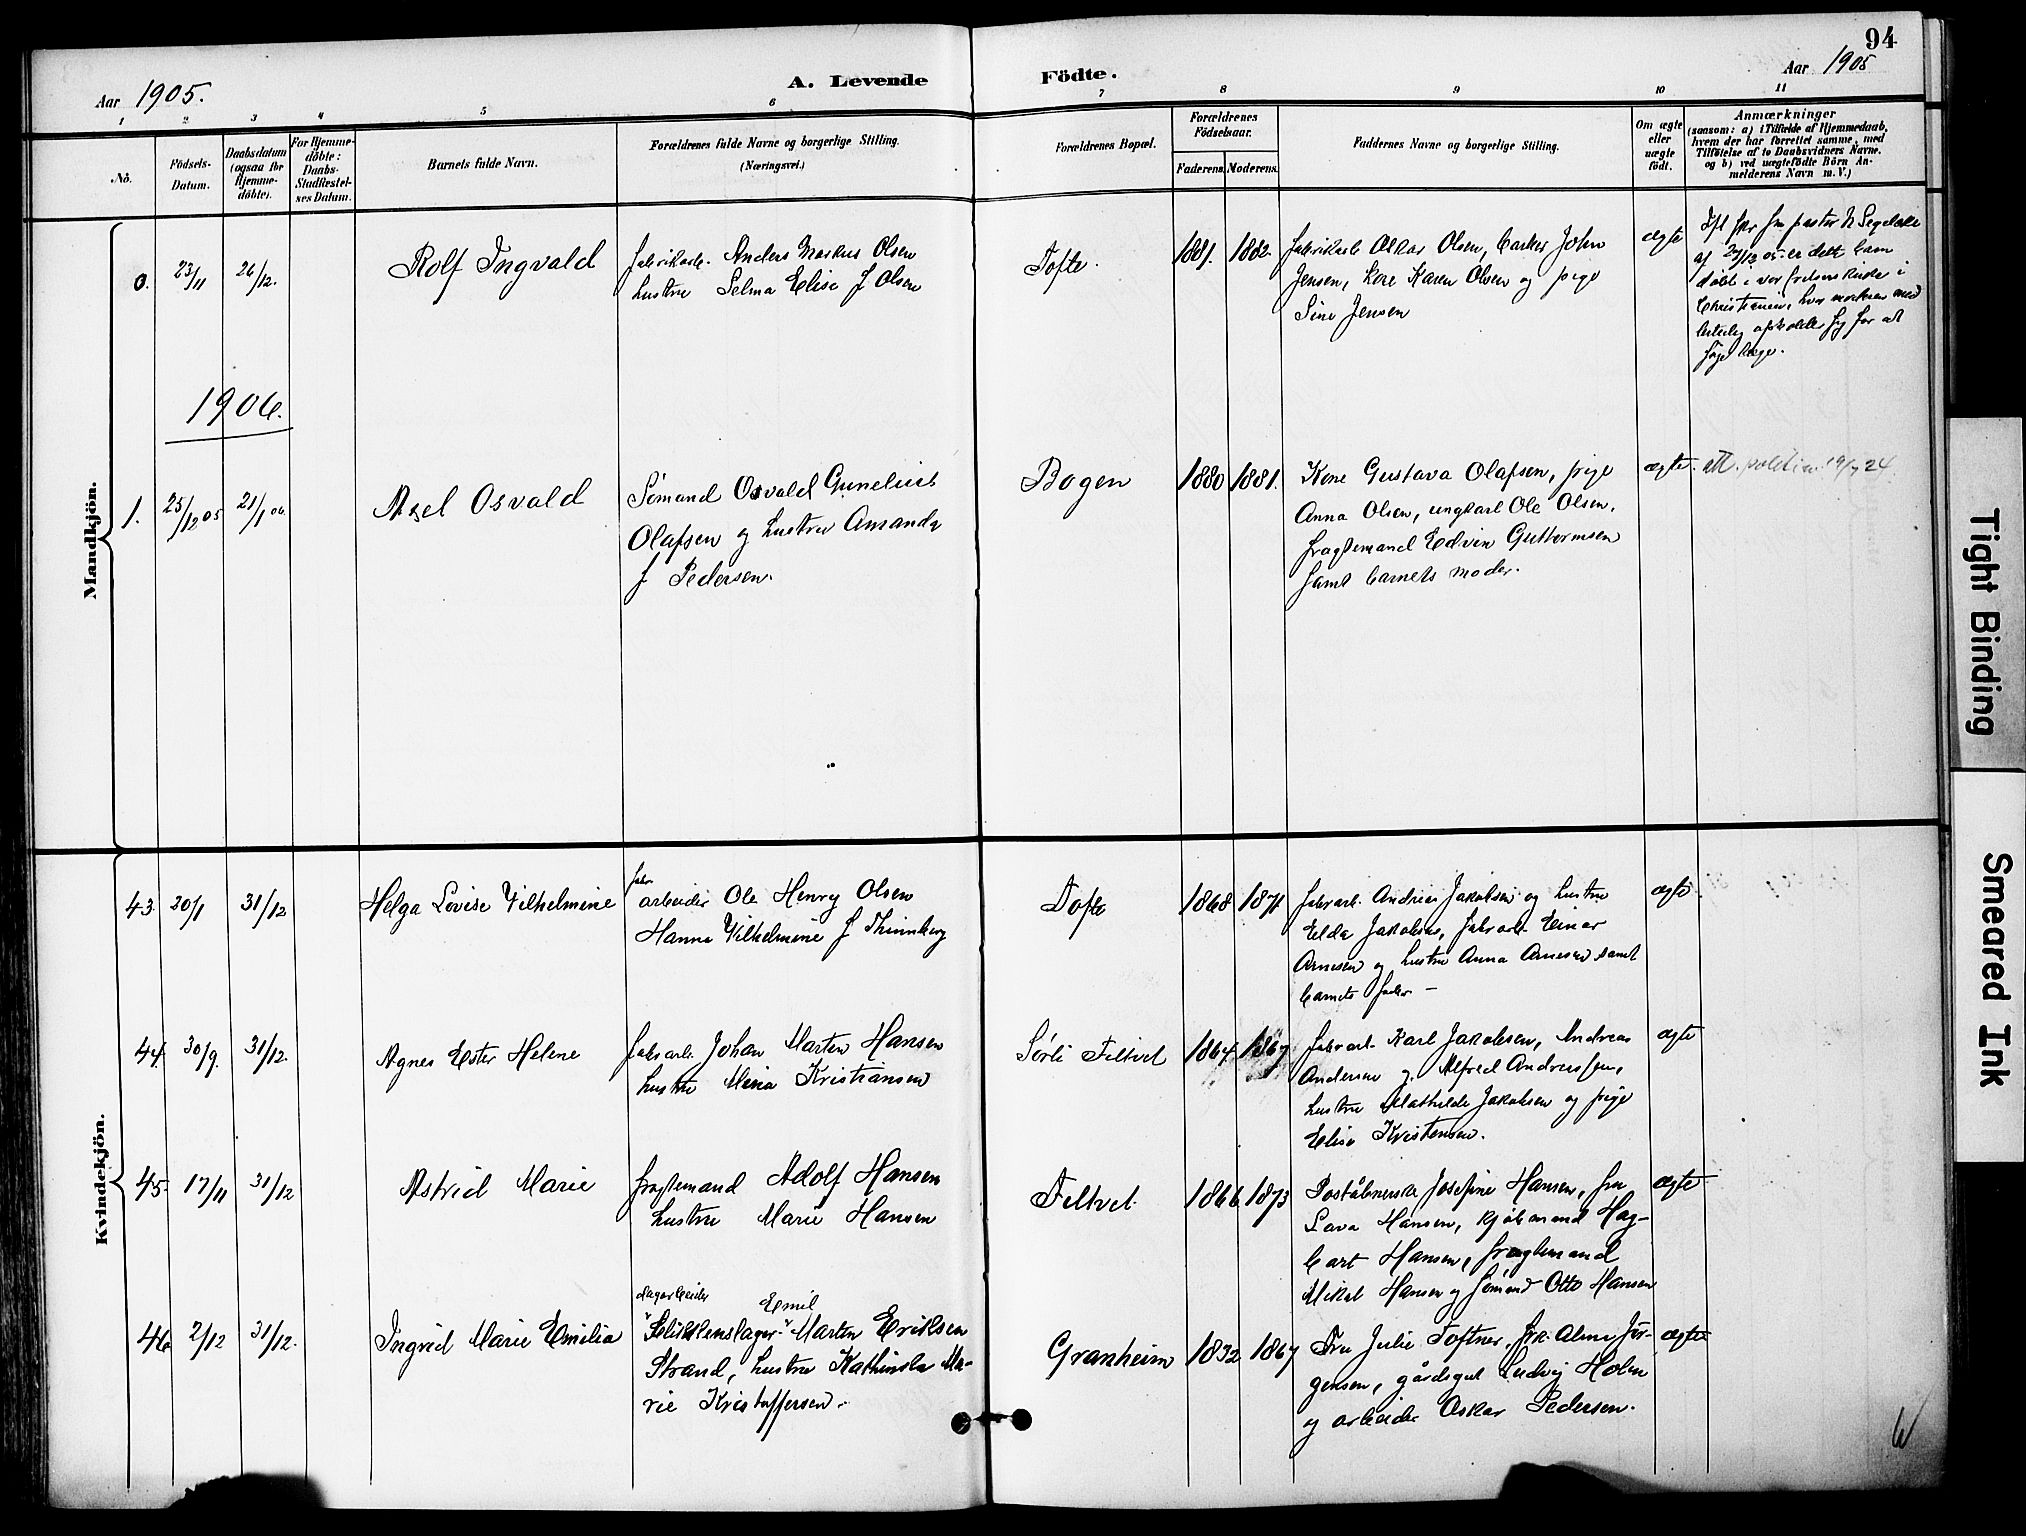 94
Aar 1905.
A. Levende Födte.
Aar 1905
1 2 3 4 5 6 7 8 9 10 11
No.
Födsels-
Datum.
Daabsdatum
(ogsaa for
Hjemme-
döbte).
For Hjemme-
döbte:
Daabs-
Stadfæstel-
ses Datum.
Barnets fulde Navn.
Forældrenes fulde Navne og borgerlige Stilling.
(Næringsvei.)
Forældrenes Bopæl.
Forældrenes
Födselsaar.
Faderens. Moderens.
Faddernes Navne og borgerlige Stilling.
Om ægte
eller
uægte
födt.
Anmærkninger
(saasom: a) i Tilfælde af Hjemmedaab,
hvem der har forrettet samme, med
Tilföielse af to Daabsvidners Navne,
og b) ved uægtefödte Börn An-
melderens Navn m. V.)
Mandkjön.
0. 23/11 26/12.
Rolf Ingvald
fabrikarb. Anders Markus Olsen
hustru Selma Elise f Olsen
Tofte.
1881. 1882.
fabrikarb Oskar Olsen, barker John
Jensen, kone Karen Olsen og pige
Sine Jensen
ægte
af 27/12 05 er dette barn
döbt i vor frelsers kirke i
Christiania, hvor moderen med
1906.
1. 25/12 05 21/1 06
Axel Osvald
Sømand Osvald Gunelius
Olafsen og hustru Amanda
f Pedersen.
Bogen
1880 1881.
Kone Gustava Olafsen, pige
Anna Olsen, ungkarl Ole Olsen,
fragtemand Edvin Guttormsen
samt barnets moder.
ægte.
att. politiet 19/7 24.
Kvindekjön.
43 30/1 31/12
Helga Lovise Vilhelmine
fabr
arbeider Ole Henry Olsen
Hanna Vilhelmine f
Tofte
1868 1871
fabrarb. Andreas Jakobsen og hustru
Elda Jakobsen, fabrarb Einar
Arnesen og hustru Anna Arnesen samt
barnets fader –
ægte.
44. 30/9. 31/12.
Agnes Ester Helene
fabrarb. Johan Martin Hansen
hustru Mina Kristiansen
Sørli Filtvet
1864. 1867
fabrarb. Karl Jakobsen, Andreas
Andersen og Alfred Andreassen,
hustru Mathilde Jakobsen og pige
Elise Kristensen.
ægte
45. 17/11 31/12
Astrid Marie
fragtemand Adolf Hansen
hustru Marie Hansen
Filtvet.
1866 1873
Poståbnerske Josefine Hansen, fru
Lava Hansen, kjøbmand Hag-
bart Hansen, fragtemand
Mikal Hansen og sømand Otto Hansen
ægte
46 2/12 31/12.
Ingrid Marie Emilia
dagarbeider Emil
"Slikkenslager" Martin Eriksen
Strand, hustru Kathinka Ma-
rie Kristoffersen.
Granheim
1832 1867
Fru Julie Toftner, frk. Alma Jør-
gensen, gårdsgut Ludvig Holm
og arbeider Oskar Pedersen.
ægte
Tight Binding
Smeared Ink